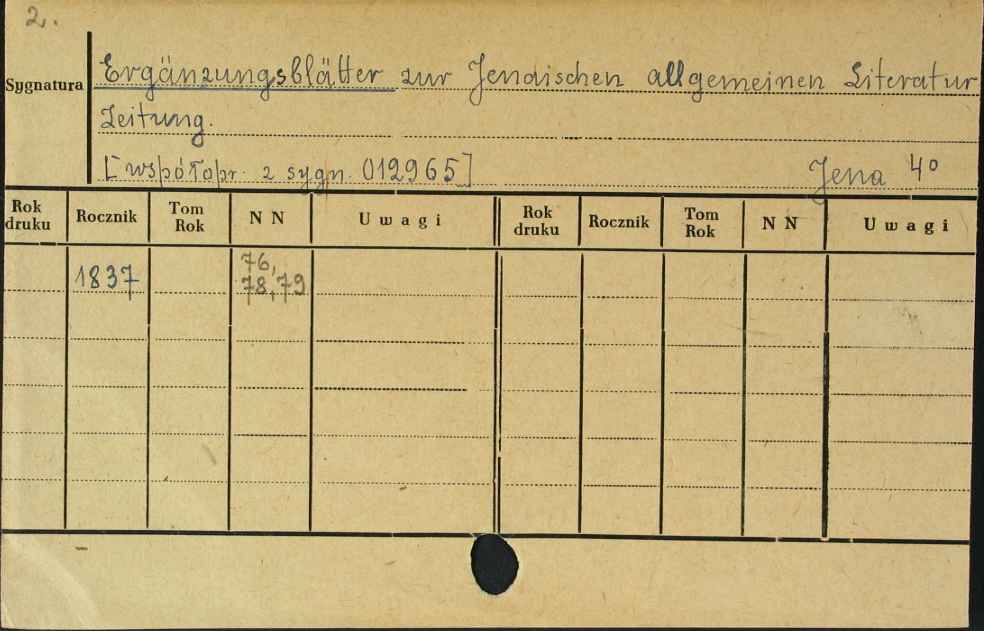 2.
Sygnatura
Ergänzungsblätter zur Jenaischen allgemeinen Literatur
Zeitung.
[współopr. z sygn. 012965] Jena 4°
Rok druku Rocznik Tom Rok NN Uwagi Rok druku Rocznik Tom Rok NN Uwagi
1837 76,
78,79